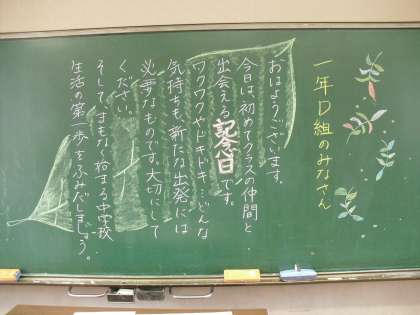 一年D組のみなさん
おはようございます。
今日は、初めてクラスの仲間と
出会える記念日です。
ワクワクやドキドキ…どんな
気持ちも新たな出発には
必要なものです。大切にして
ください。
そして、まもなく始まる中学校
生活の第一歩をふみだしましょう。